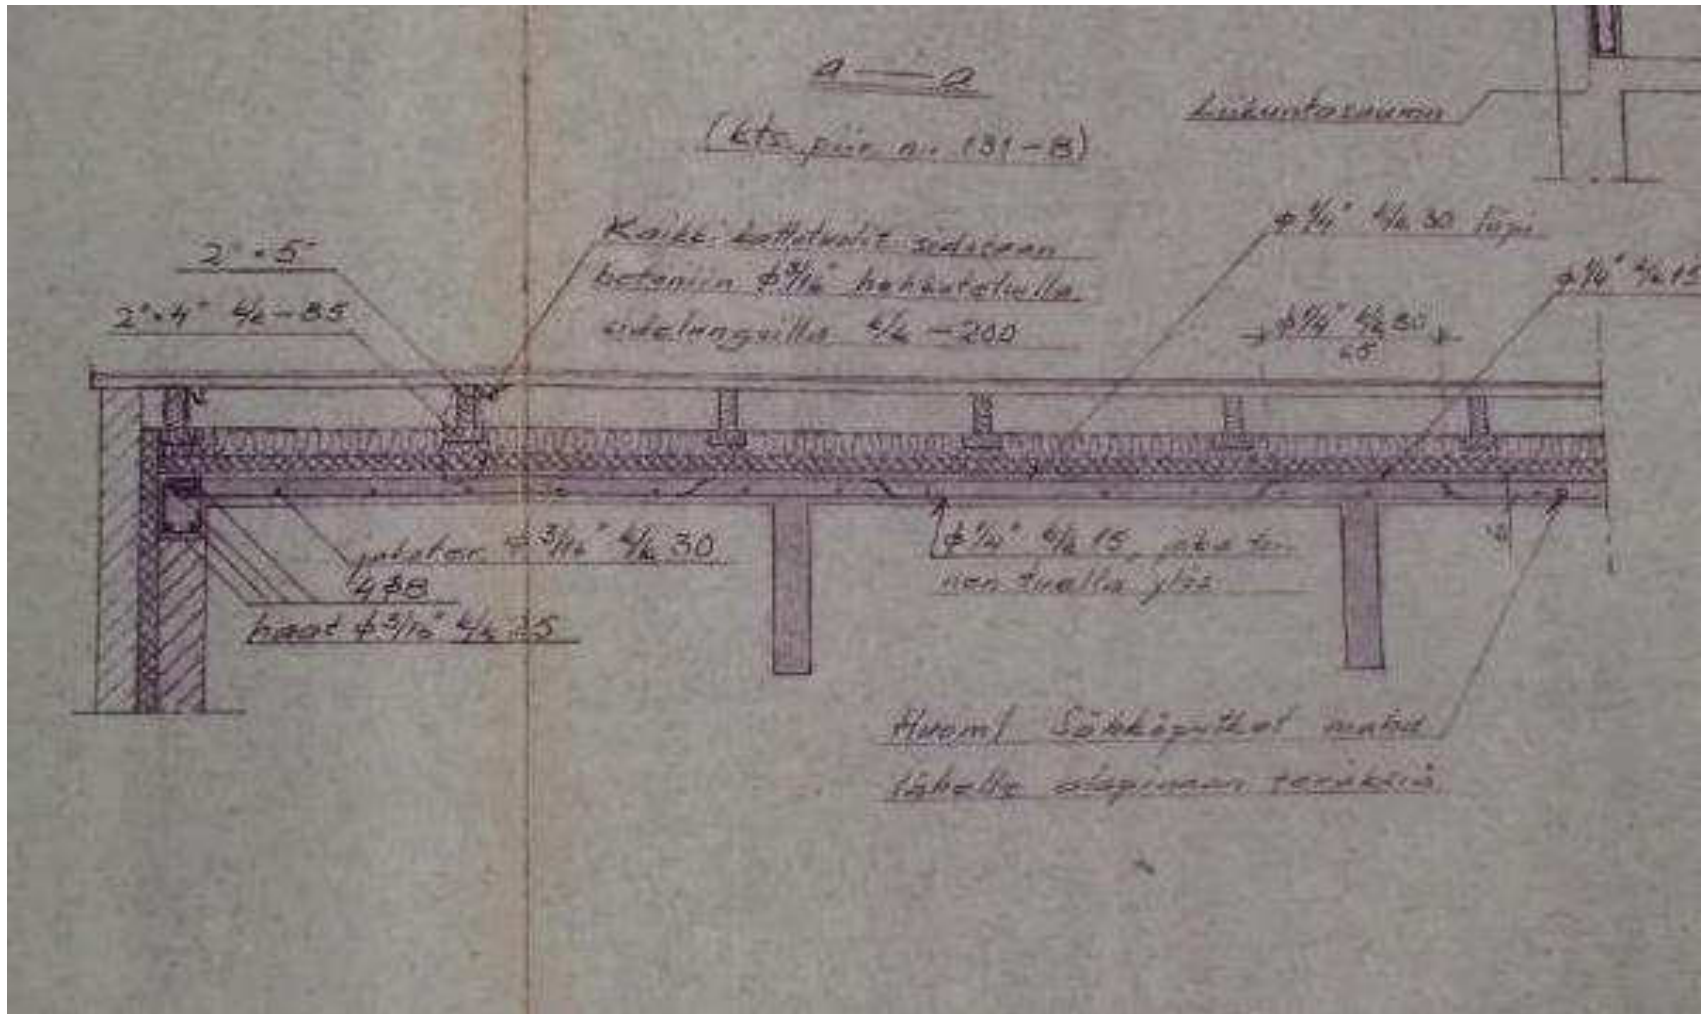 a — a
(kts. piir. n:o 131-B)
Liikuntasauma
2"×5"
2"×4" k/k-85
Kaikki kattotuolit sidotaan
betoniin ϕ3/16" hehkutetulla
sidelangalla k/k-200
ϕ1/4" k/k 30 läpi
ϕ1/4" k/k 15
ϕ1/4" k/k 30
65
jakoter. ϕ3/16" k/k 30
4ϕ8
haat ϕ3/16" k/k 25
ϕ1/4" k/k 15, joka
nen tuella ylös
Huom! Sähköputket
lähelle alapinnan teräksiä